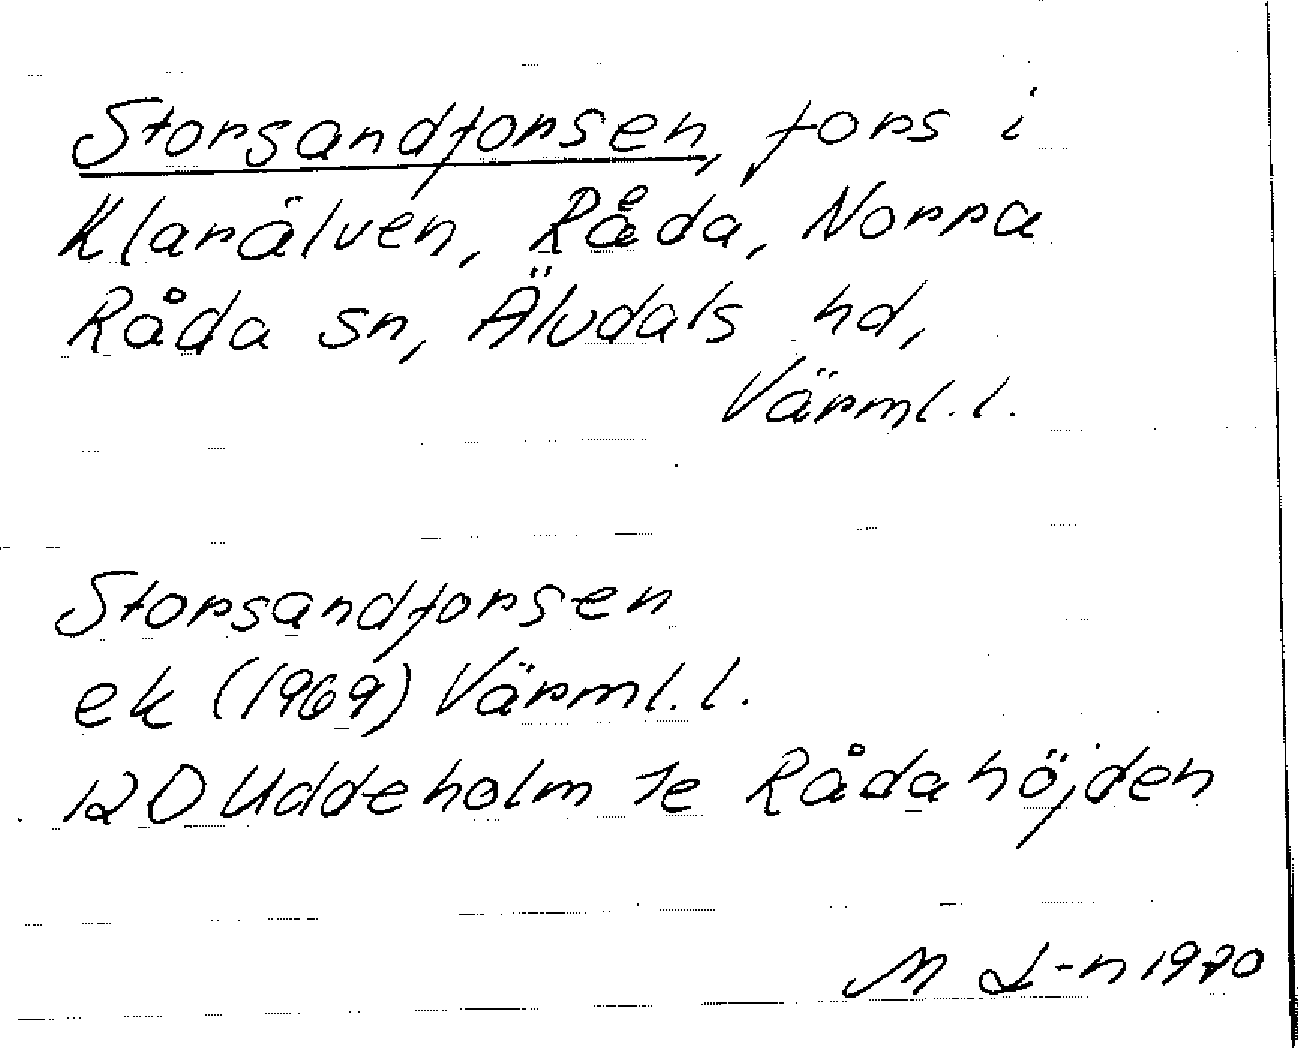 Storsandforsen, fors i
Klarälven, Råda, Norra
Råda sn, Älvdals hd,
Värml. l.
Storsandforsen
ek (1969) Värml. l.
12D Uddeholm 1e Rådahöjden
M L-n 1970